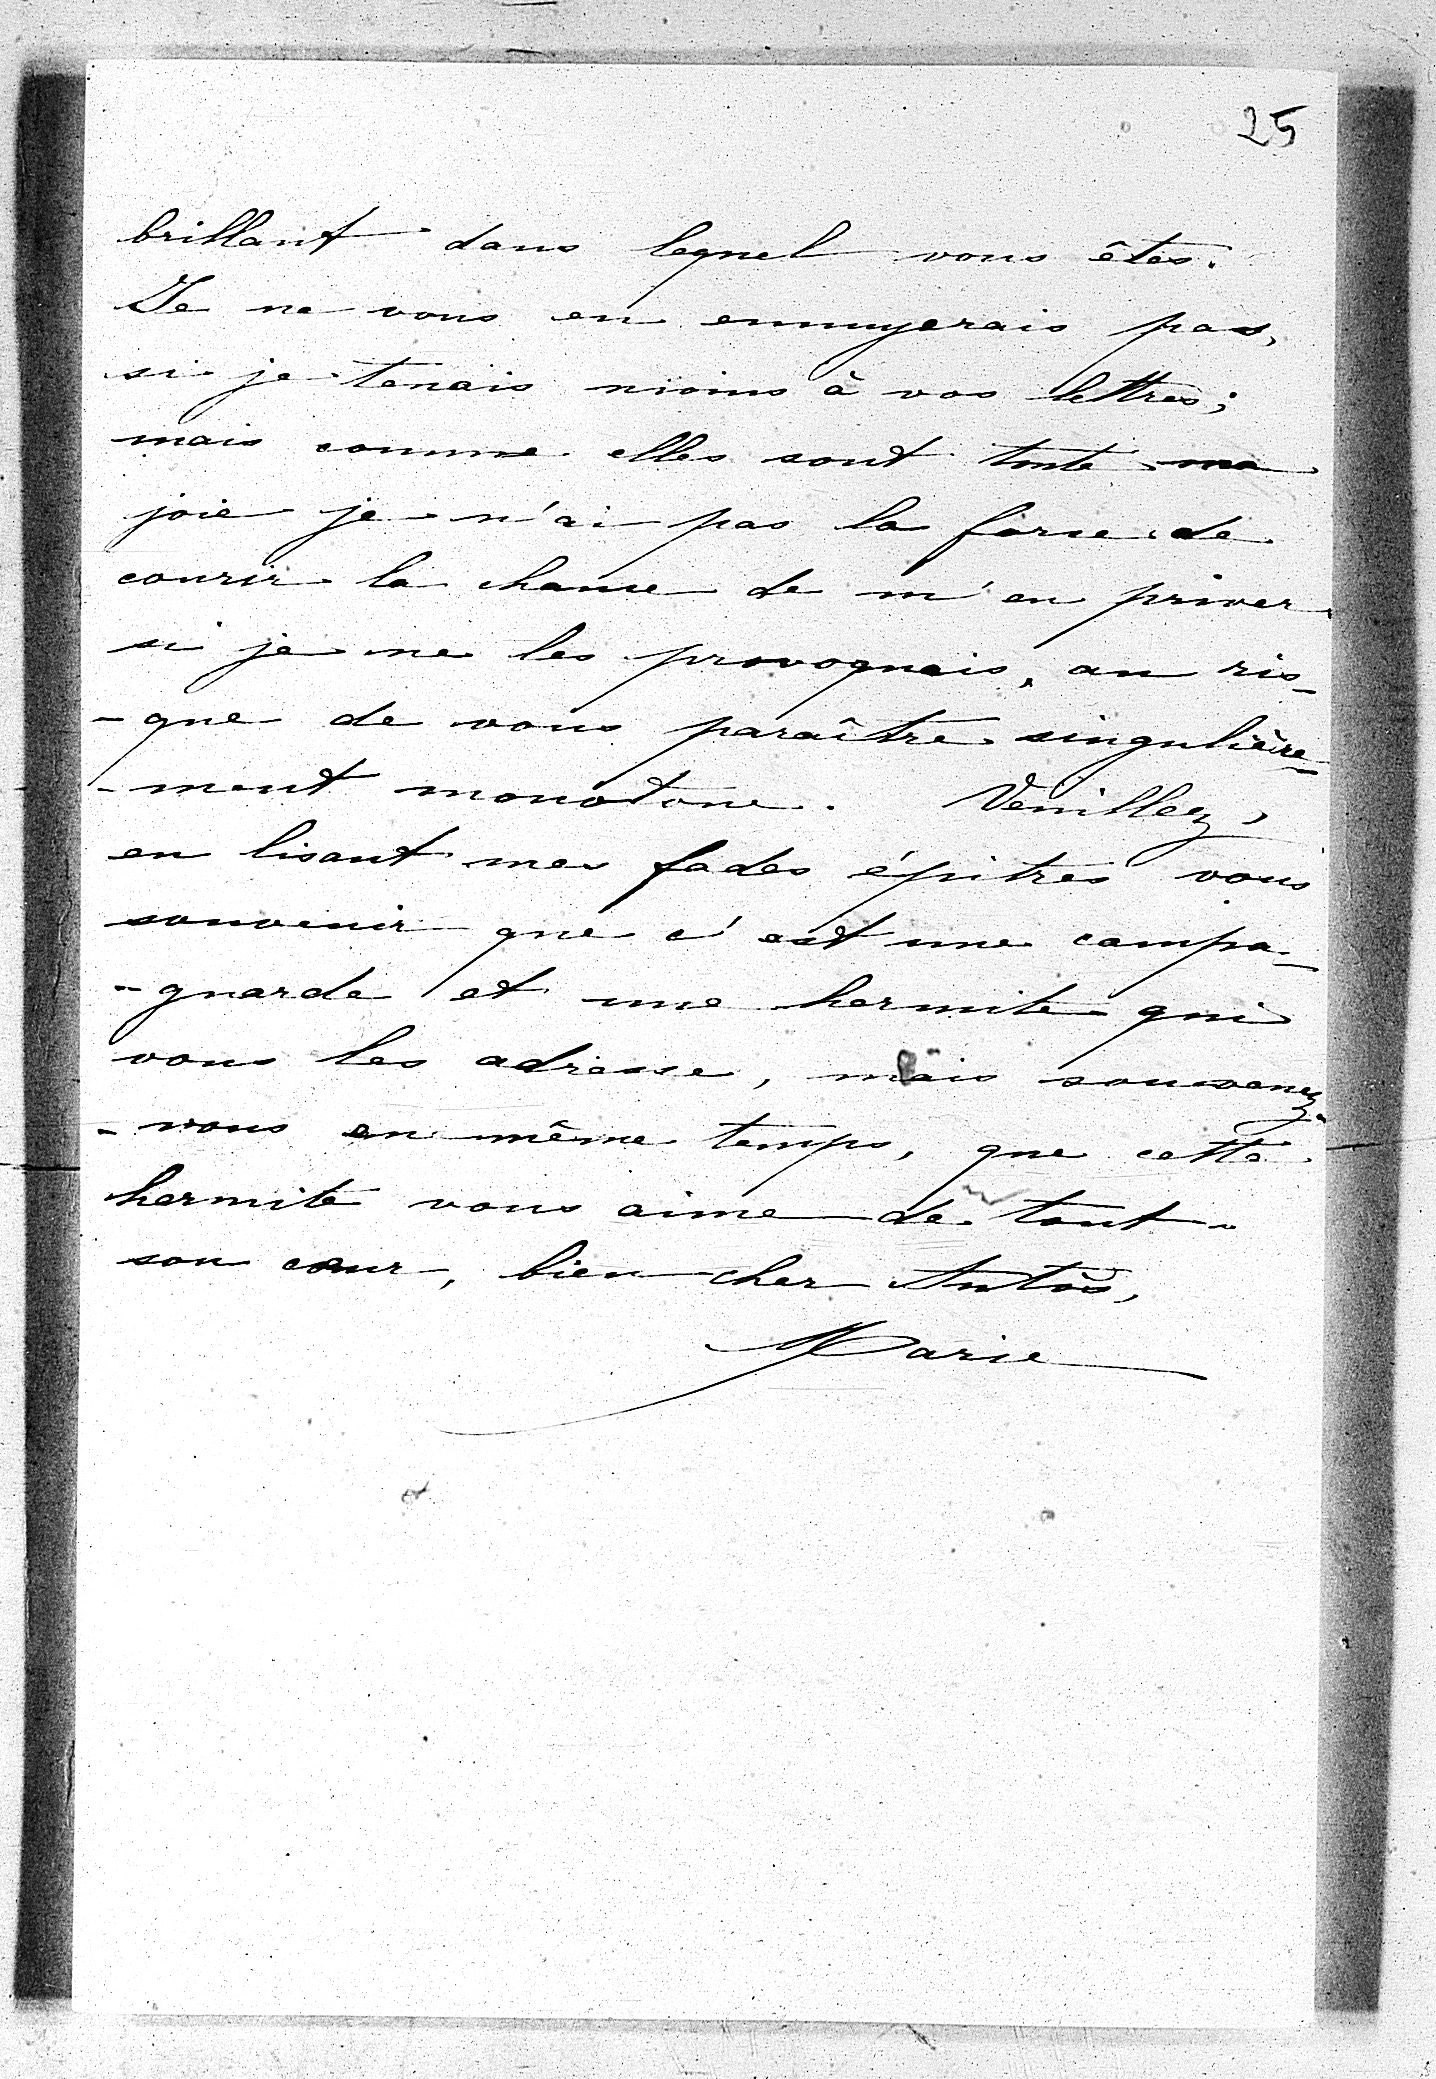 25
brillant dans lequel vous êtes.
Je ne vous en ennuyerais pas,
si je tenais moins à vos lettres;
mais comme elles sont toute ma
joie je n'ai pas la force de
courir la chance de m'en priver
si je ne les provoquais, au ris-
-que de vous paraître singulière-
-ment monotone. Veuillez,
en lisant mes fades épitres vous
souvenir que c'est une campa-
-gnarde et une hermite qui
vous les adresse, mais souvenez-
-vous en même temps, que cette
hermite vous aime de tout
son cœur, bien cher Antoś,
Marie